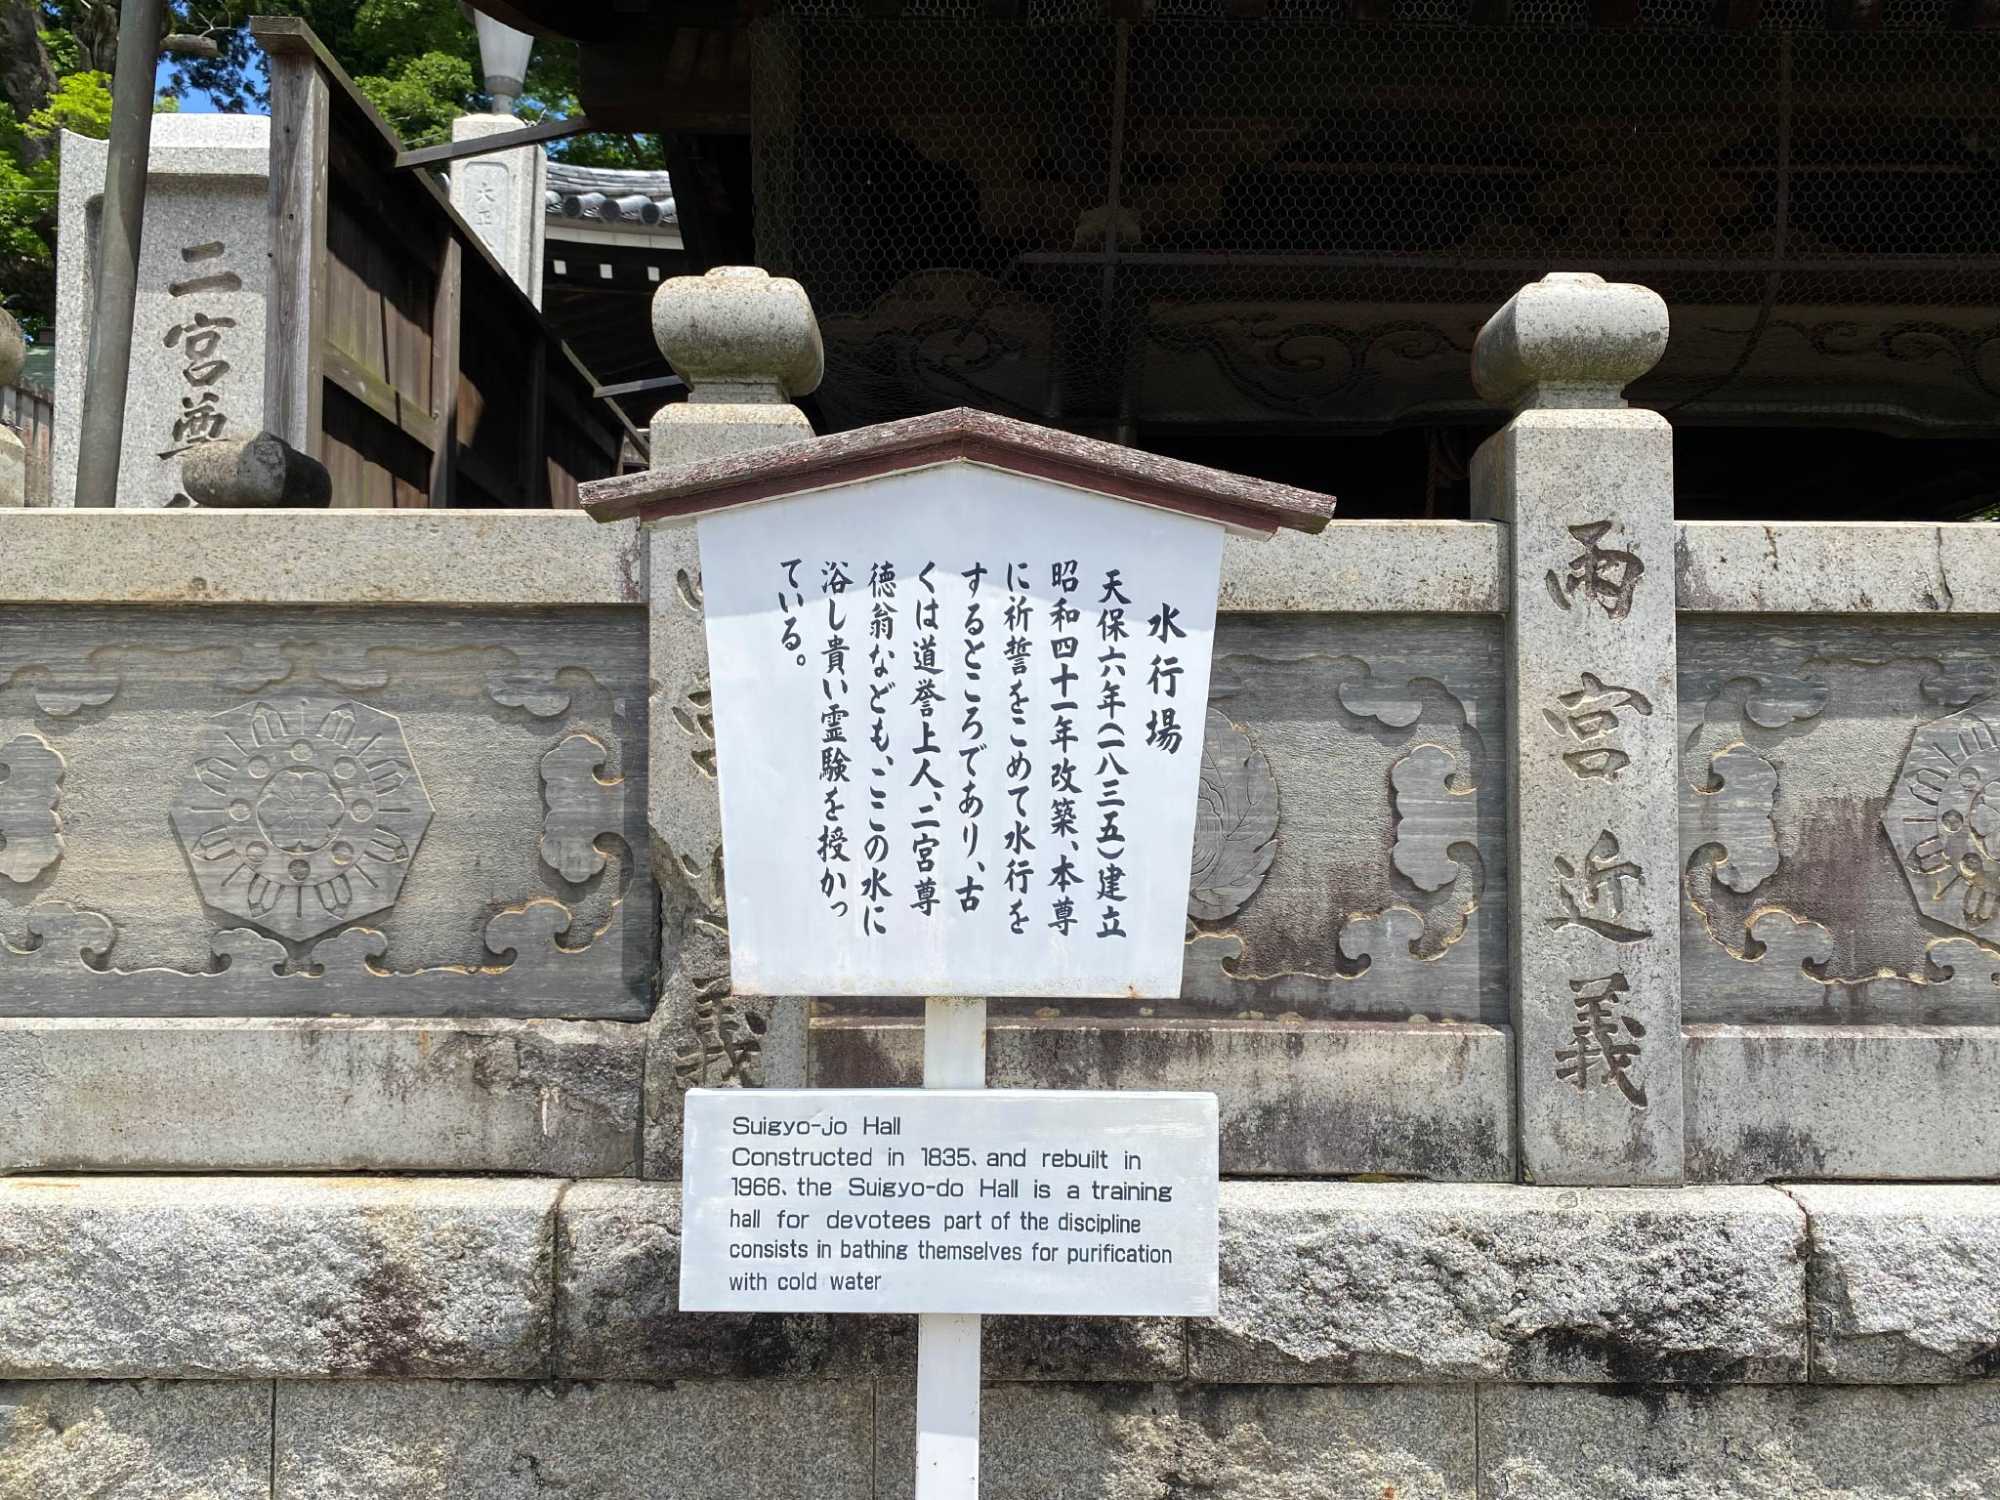 水行場
天保六年(一八三五)建立
昭和四十一年改築、本尊
に祈誓をこめて水行を
するところであり、古
くは道誉上人、二宮尊
徳翁なども、ここの水に
浴し貴い霊験を授かっ
ている。
Suigyo-jo Hall
Constructed in 1835、and rebuilt in
1966、the Suigyo-do Hall is a training
hall for devotees part of the discipline
consists in bathing themselves for purification
with cold water
雨宮近義
二宮尊
大正
義